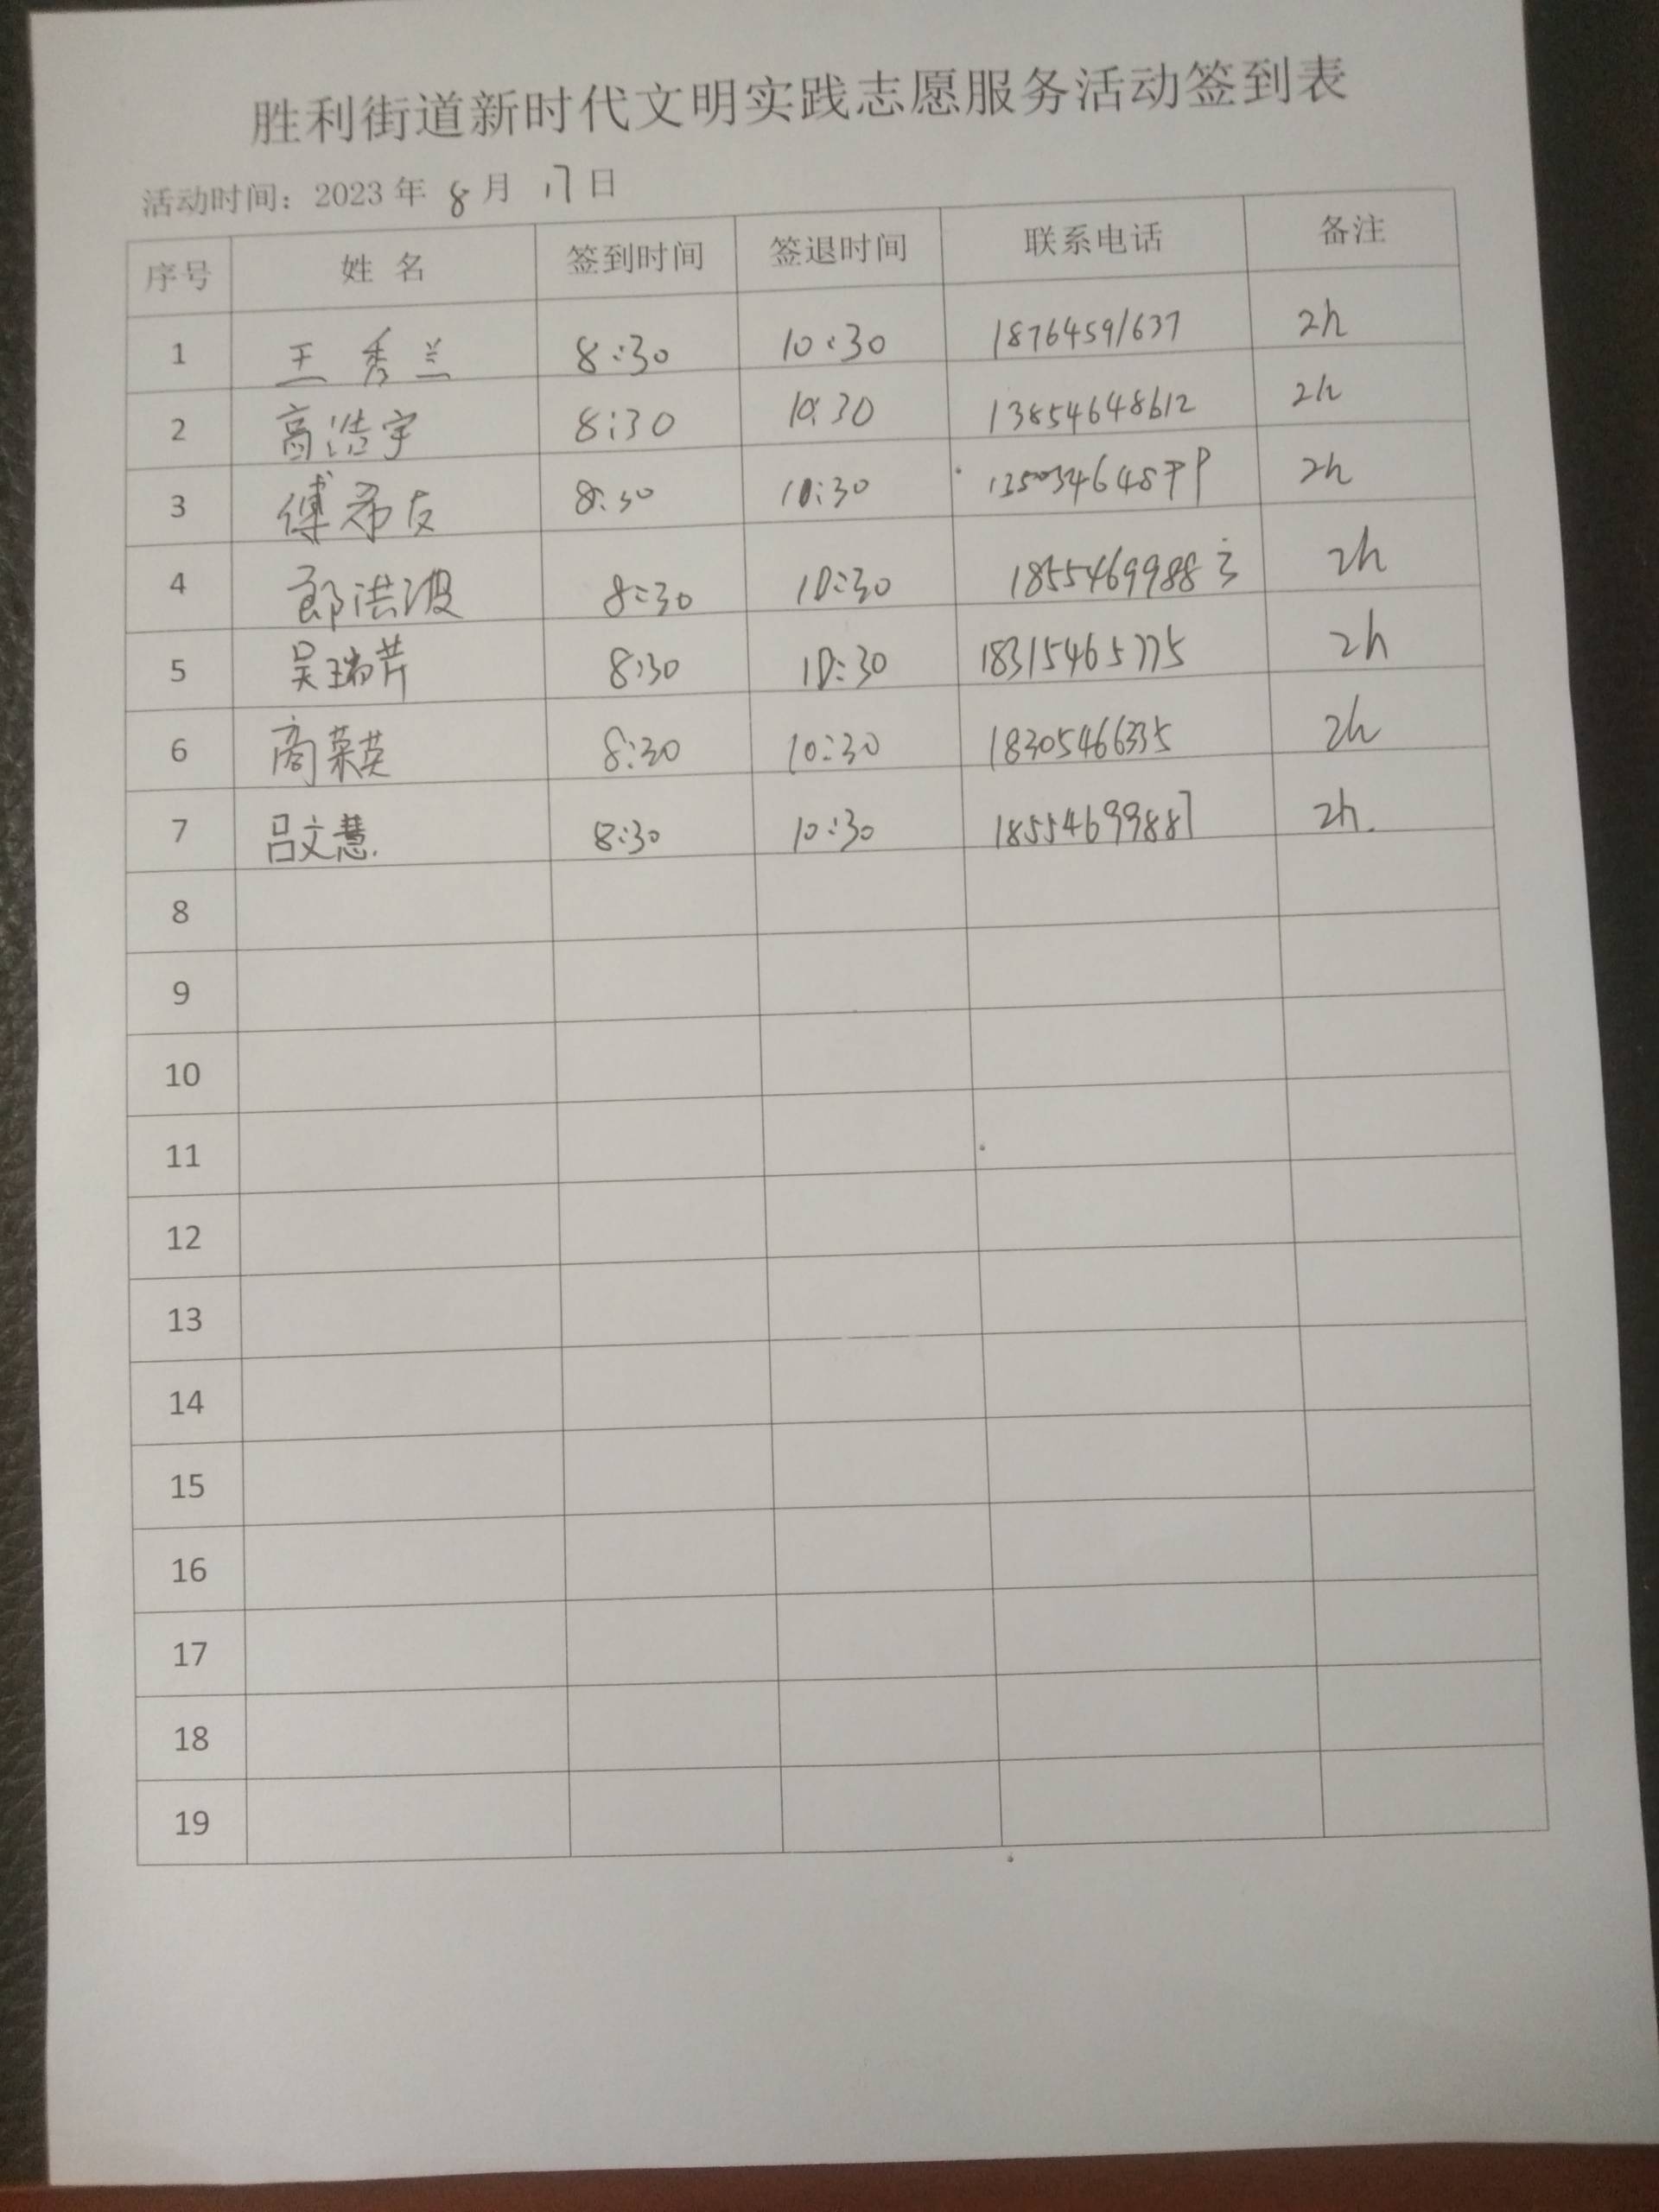 胜利街道新时代文明实践志愿服务活动签到表
活动时间：2023年 8月 17日
序号 姓名 签到时间 签退时间 联系电话 备注
1 王秀兰 8:30 10:30 18764591637 2h
2 高浩宇 8:30 10:30 13854648612 2h
3 傅希友 8:30 10:30 2h
4 郎洪波 8:30 10:30 2h
5 吴瑞芹 8:30 10:30 18315465775 2h
6 商荣英 8:30 10:30 18305466335 2h
7 吕文慧. 8:30 10:30 18554699887 2h.
8
9
10
11
12
13
14
15
16
17
18
19